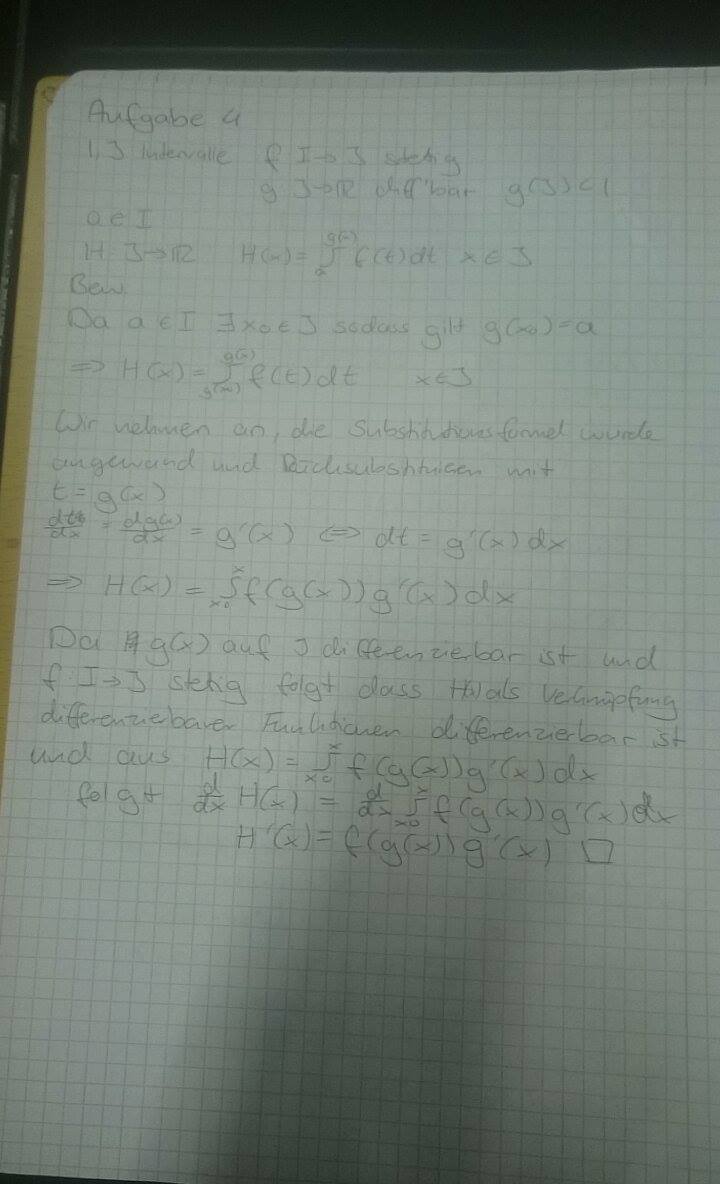 Aufgabe 4
I, J Intervalle f I→J stetig
g J→ℝ diff'bar g(J) ⊂ I
a ∈ I
H: J→ℝ H(x) = ∫_a^{g(x)} f(t) dt x ∈ J
Bew.
Da a ∈ I ∃ x₀ ∈ J sodass gilt g(x₀) = a
⇒ H(x) = ∫_{g(x₀)}^{g(x)} f(t) dt x ∈ J
Wir nehmen an, die Substitutionsformel wurde
angewand und Rücksubstituieren mit
t = g(x)
dt/dx = dg(x)/dx = g'(x) ⇔ dt = g'(x) dx
⇒ H(x) = ∫_{x₀}^x f(g(x)) g'(x) dx
Da g(x) auf J differenzierbar ist und
f: I→J stetig folgt dass H(x) als Verknüpfung
differenzierbarer Funktionen differenzierbar ist
und aus H(x) = ∫_{x₀}^x f(g(x)) g'(x) dx
folgt d/dx H(x) = d/dx ∫_{x₀}^x f(g(x)) g'(x) dx
H'(x) = f(g(x)) g'(x) □